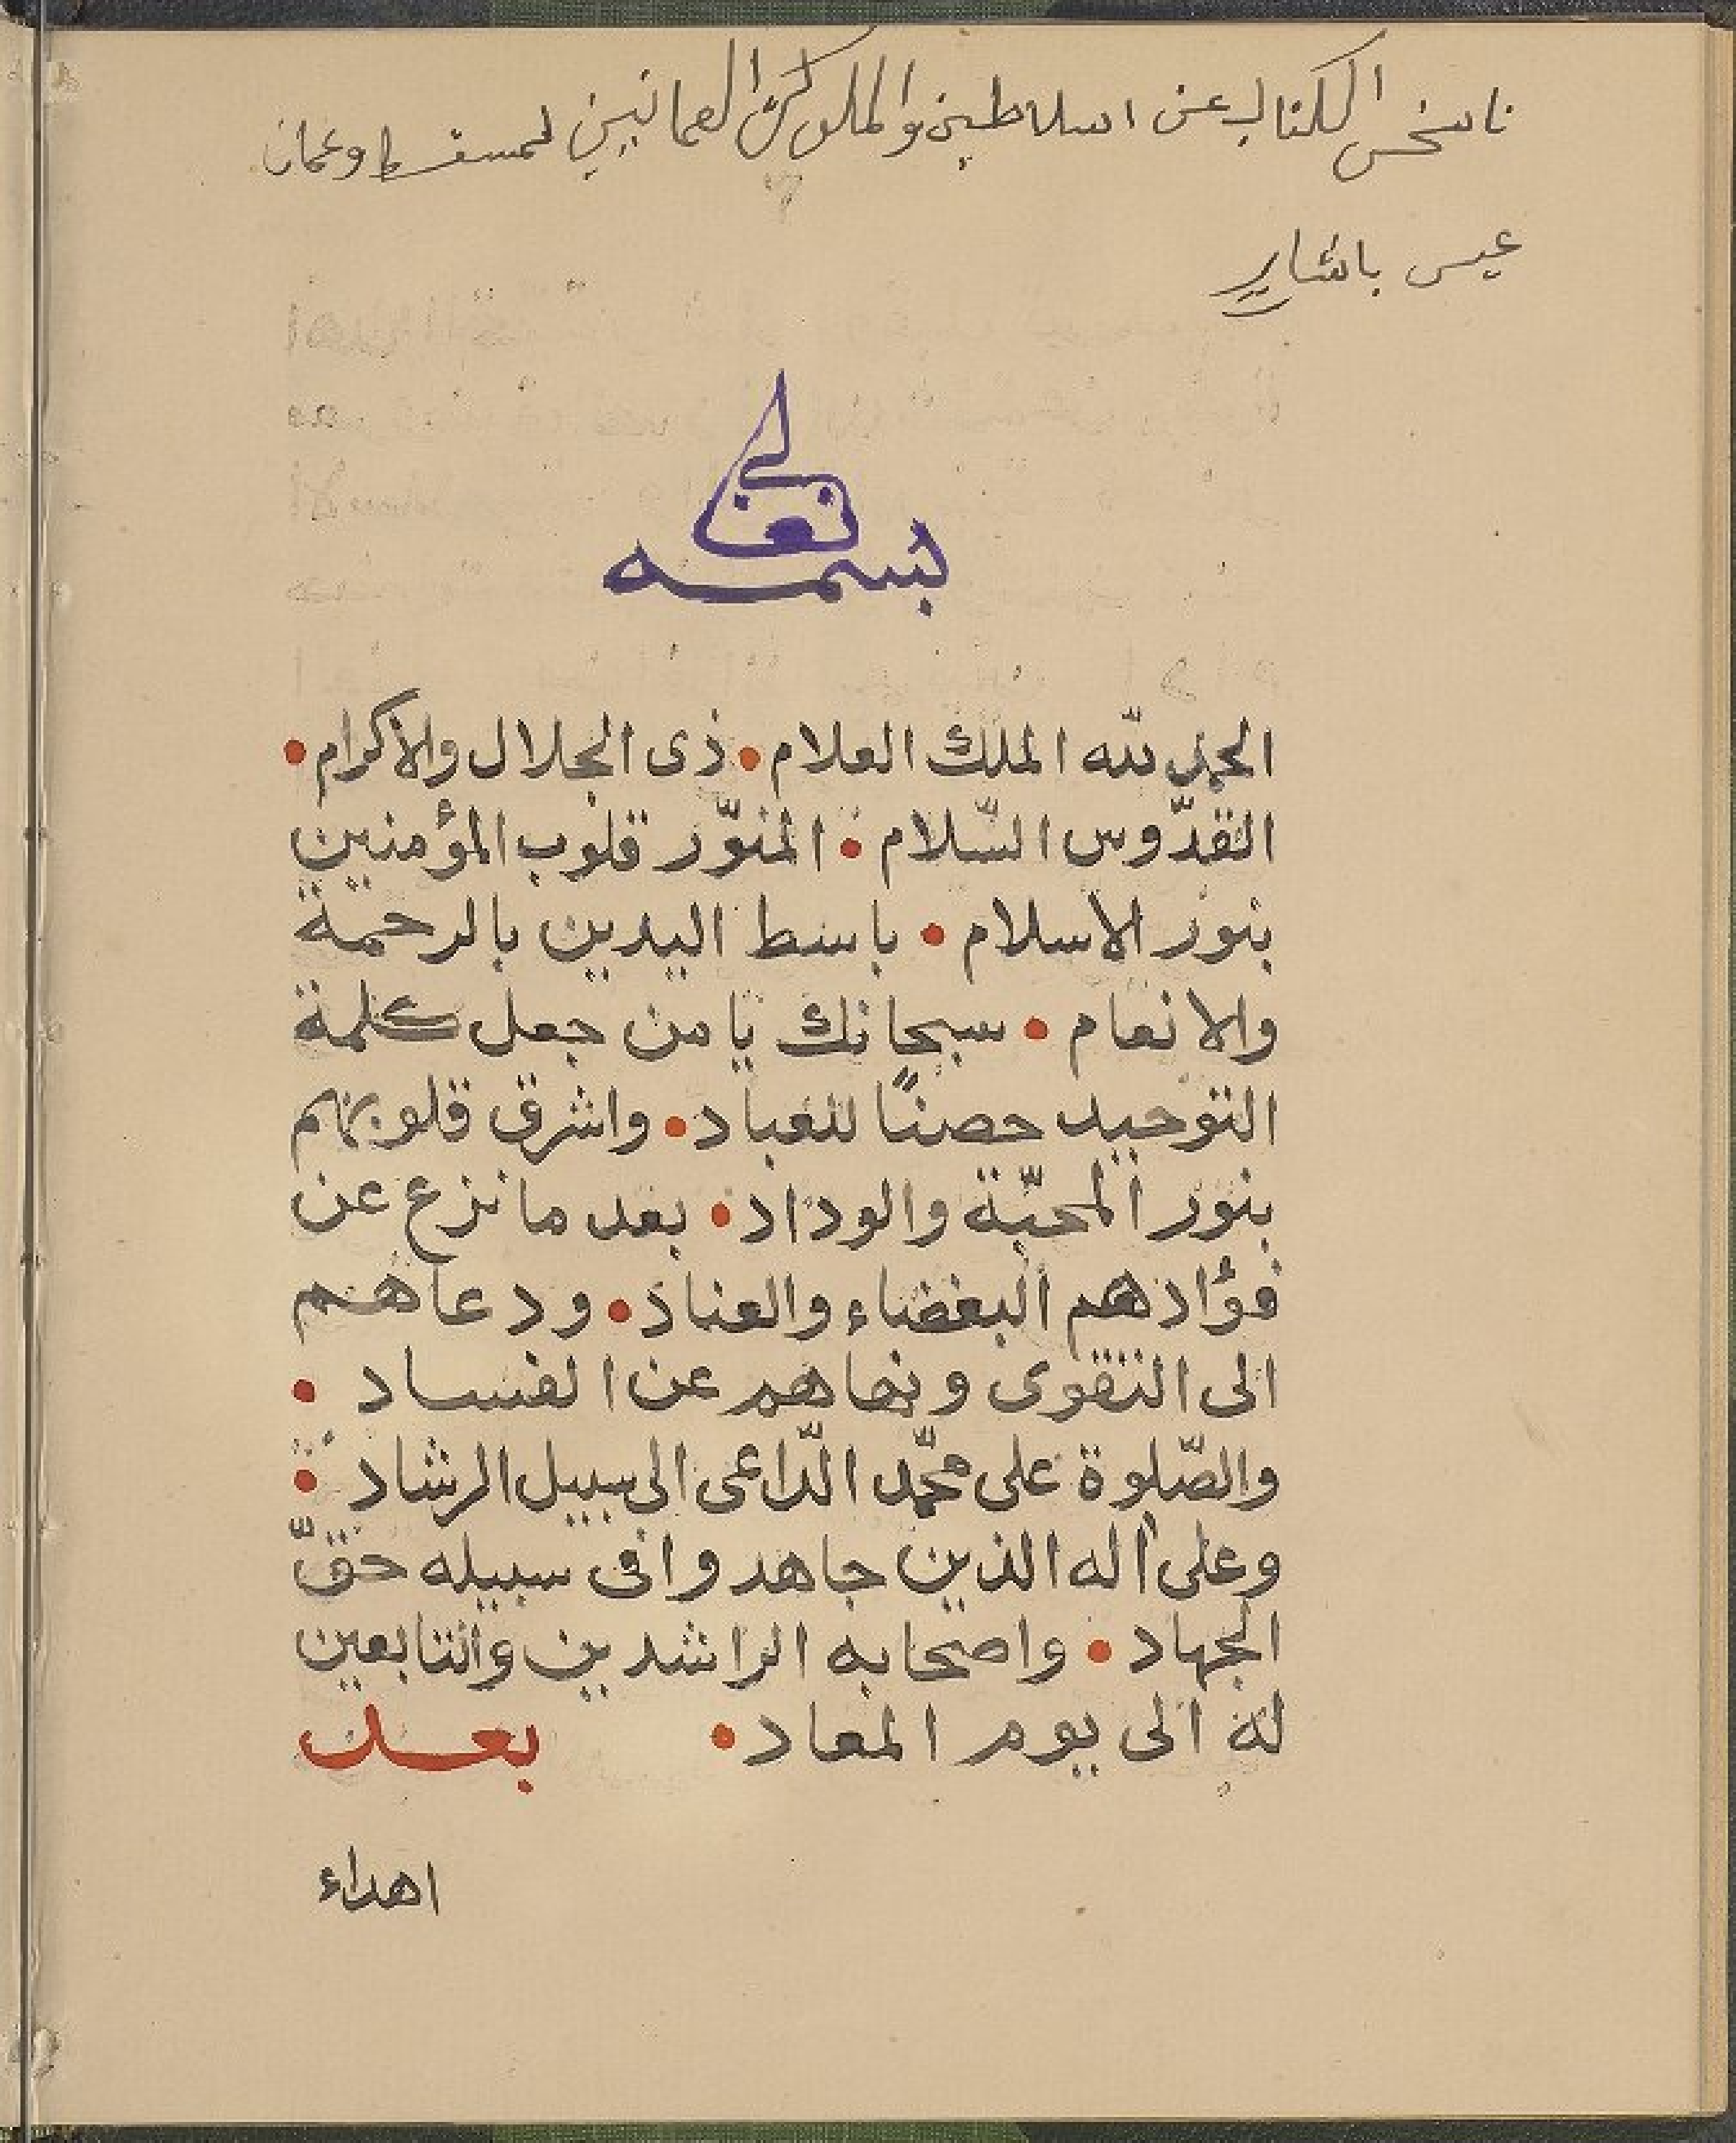 ناسخ الكتاب عن اسلاطين والملوك العمانيين لمسقط وعمان
عيسى باشا
بسمه تعالى
الحمد لله الملك العلام • ذى الجلال والاكرام •
القدّوس السّلام • المنوّر قلوب المؤمنين
بنور الاسلام • باسط اليدين بالرحمة
والانعام • سبحانك يا من جعل كلمة
التوحيد حصنًا للعباد • واشرق قلوبهم
بنور المحبّة والوداد • بعد ما نزع عن
فؤادهم البغضاء والعناد • ودعاهم
الى التقوى ونهاهم عن الفساد •
والصّلوة على محمّد الدّاعى الى سبيل الرشاد •
وعلى اله الذين جاهدوا فى سبيله حقّ
الجهاد • واصحابه الراشدين والتابعين
له الى يوم المعاد • بعد
اهداء